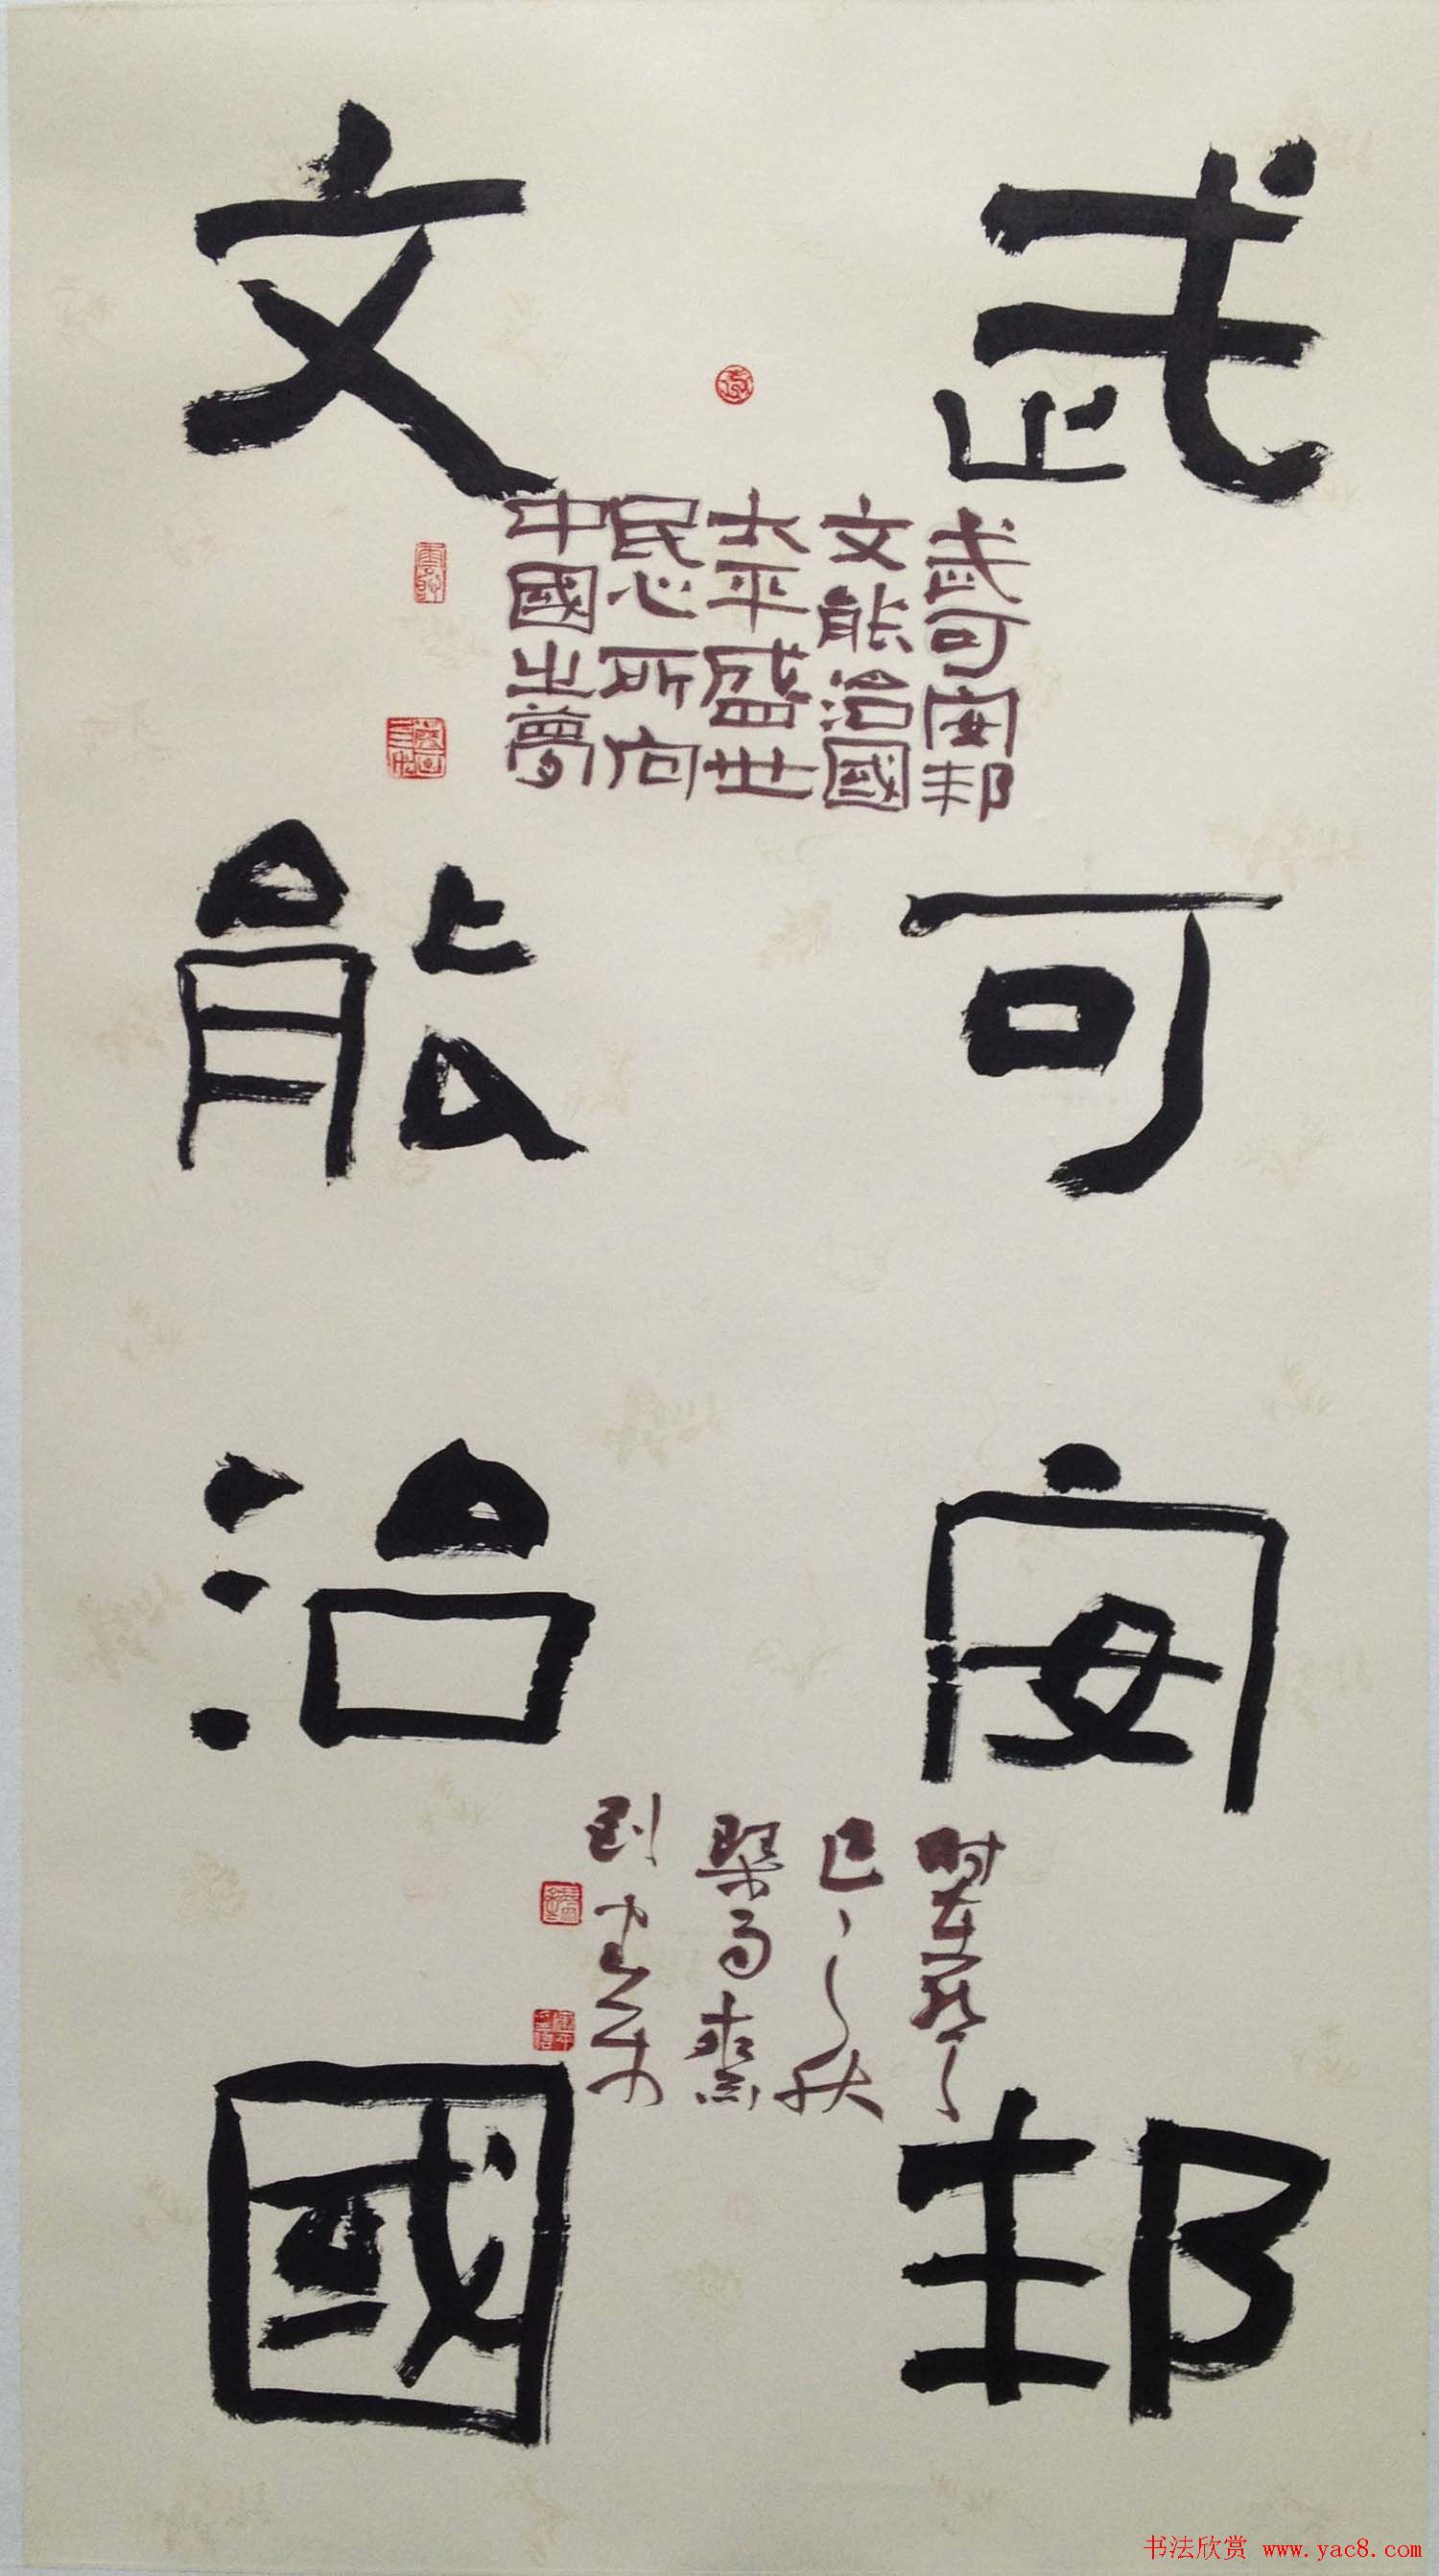 武可安邦
文能治國
武可安邦
文能治國
太平盛世
民心所向
中國之夢
时在癸
巳之秋
墨雨斋
刘
书法欣赏 www.yac8.com